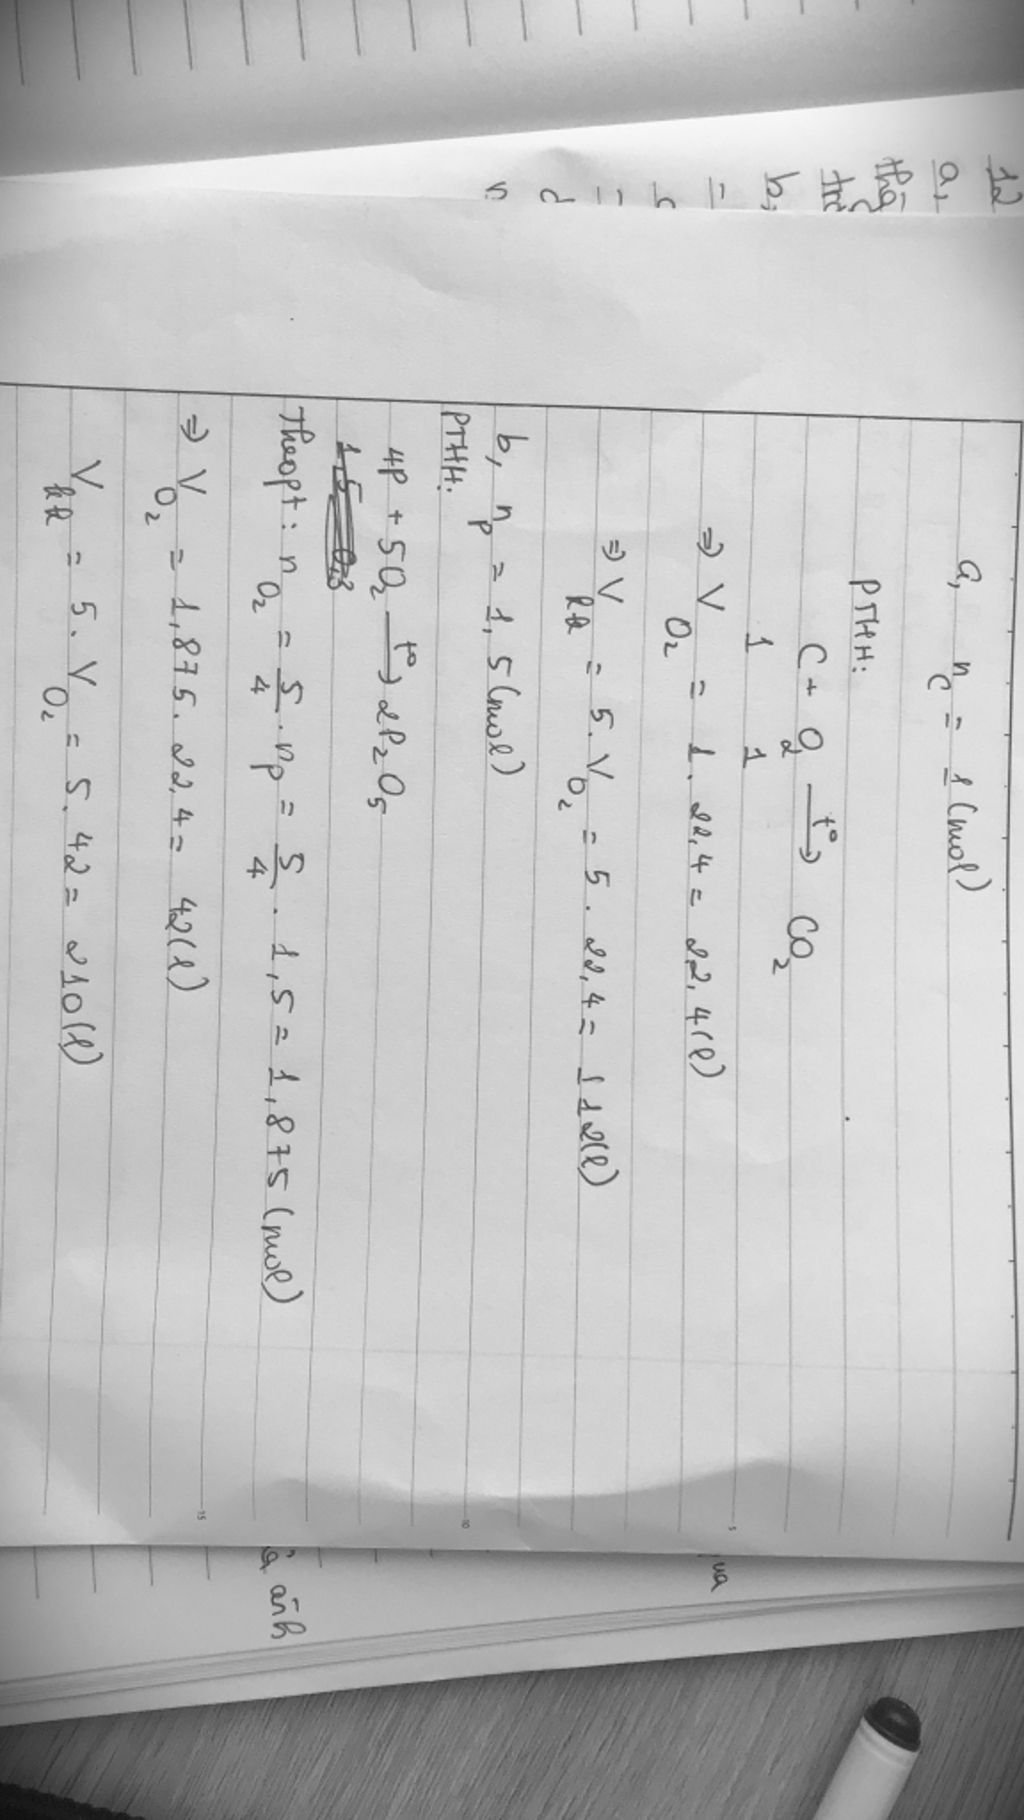 a, n_C = 1 (mol)
PTHH:
C + O₂ —t°→ CO₂
1 1
⇒ V_O₂ = 1 . 22,4 = 22,4 (l)
⇒ V_kk = 5 . V_O₂ = 5 . 22,4 = 112 (l)
b, n_P = 1,5 (mol)
PTHH:
4P + 5O₂ —t°→ 2P₂O₅
Theo pt : n_O₂ = 5/4 . n_P = 5/4 . 1,5 = 1,875 (mol)
⇒ V_O₂ = 1,875 . 22,4 = 42 (l)
V_kk = 5 . V_O₂ = 5 . 42 = 210 (l)
12
a,
b,
5
10
15